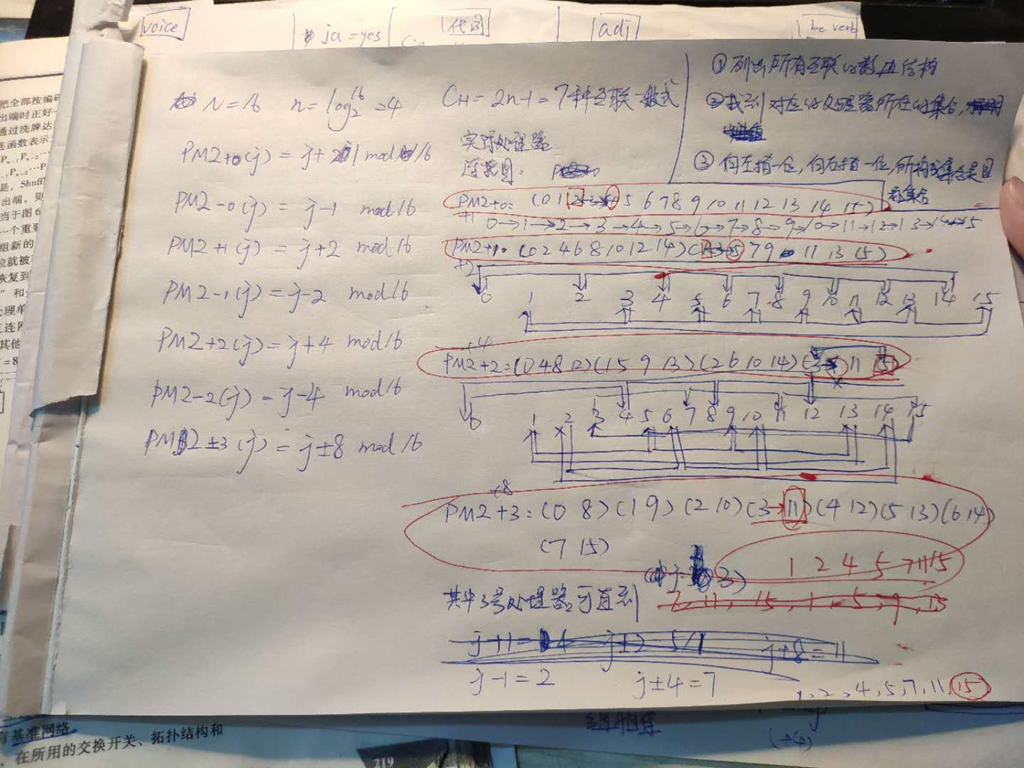 voice
ja = yes
代词
adj
be verb
把全部按编码
出端时正好一
通过洗牌达
连函数表示
是，Shuffl
出端，则
当于图6
一个重要
组新的
位就被
恢复到
" 和
处理单
互连网
其他
= 8
N = 16 n = log₂16 = 4 CH = 2n-1 = 7种互联一般式
PM2+0(j) = j+1 mod 16
PM2-0(j) = j-1 mod 16
PM2+1(j) = j+2 mod 16
PM2-1(j) = j-2 mod 16
PM2+2(j) = j+4 mod 16
PM2-2(j) = j-4 mod 16
PM2±3(j) = j±8 mod 16
① 列出所有互联
② 找到对应的处理器所在的集合,
③ 向左指一位,向右指一位,所构成集合
实际处理器
PM2+0: (0 1 2 3 4 5 6 7 8 9 10 11 12 13 14 15)
+1 0→1→2→3→4→5→6→7→8→9→10→11→12→13→14→15
PM2+1: (0 2 4 6 8 10 12 14)(1 3 5 7 9 11 13 15)
+2
0 1 2 3 4 5 6 7 8 9 10 11 12 13 14 15
+4
PM2+2: (0 4 8 12)(1 5 9 13)(2 6 10 14)(3 7 11 15)
0 1 2 3 4 5 6 7 8 9 10 11 12 13 14 15
+8
PM2+3: (0 8)(1 9)(2 10)(3→11)(4 12)(5 13)(6 14)
(7 15)
1 2 4 5 7 11 15
其中3号处理器可直到
7, 11, 15, 1, 5, 9, 15
j+1 = 4 j±2 5/1 j±8 = 11
j-1 = 2 j±4 = 7
1, 2, 4, 5, 7, 11, 15
基准网络
在所用的交换开关、拓扑结构和
219